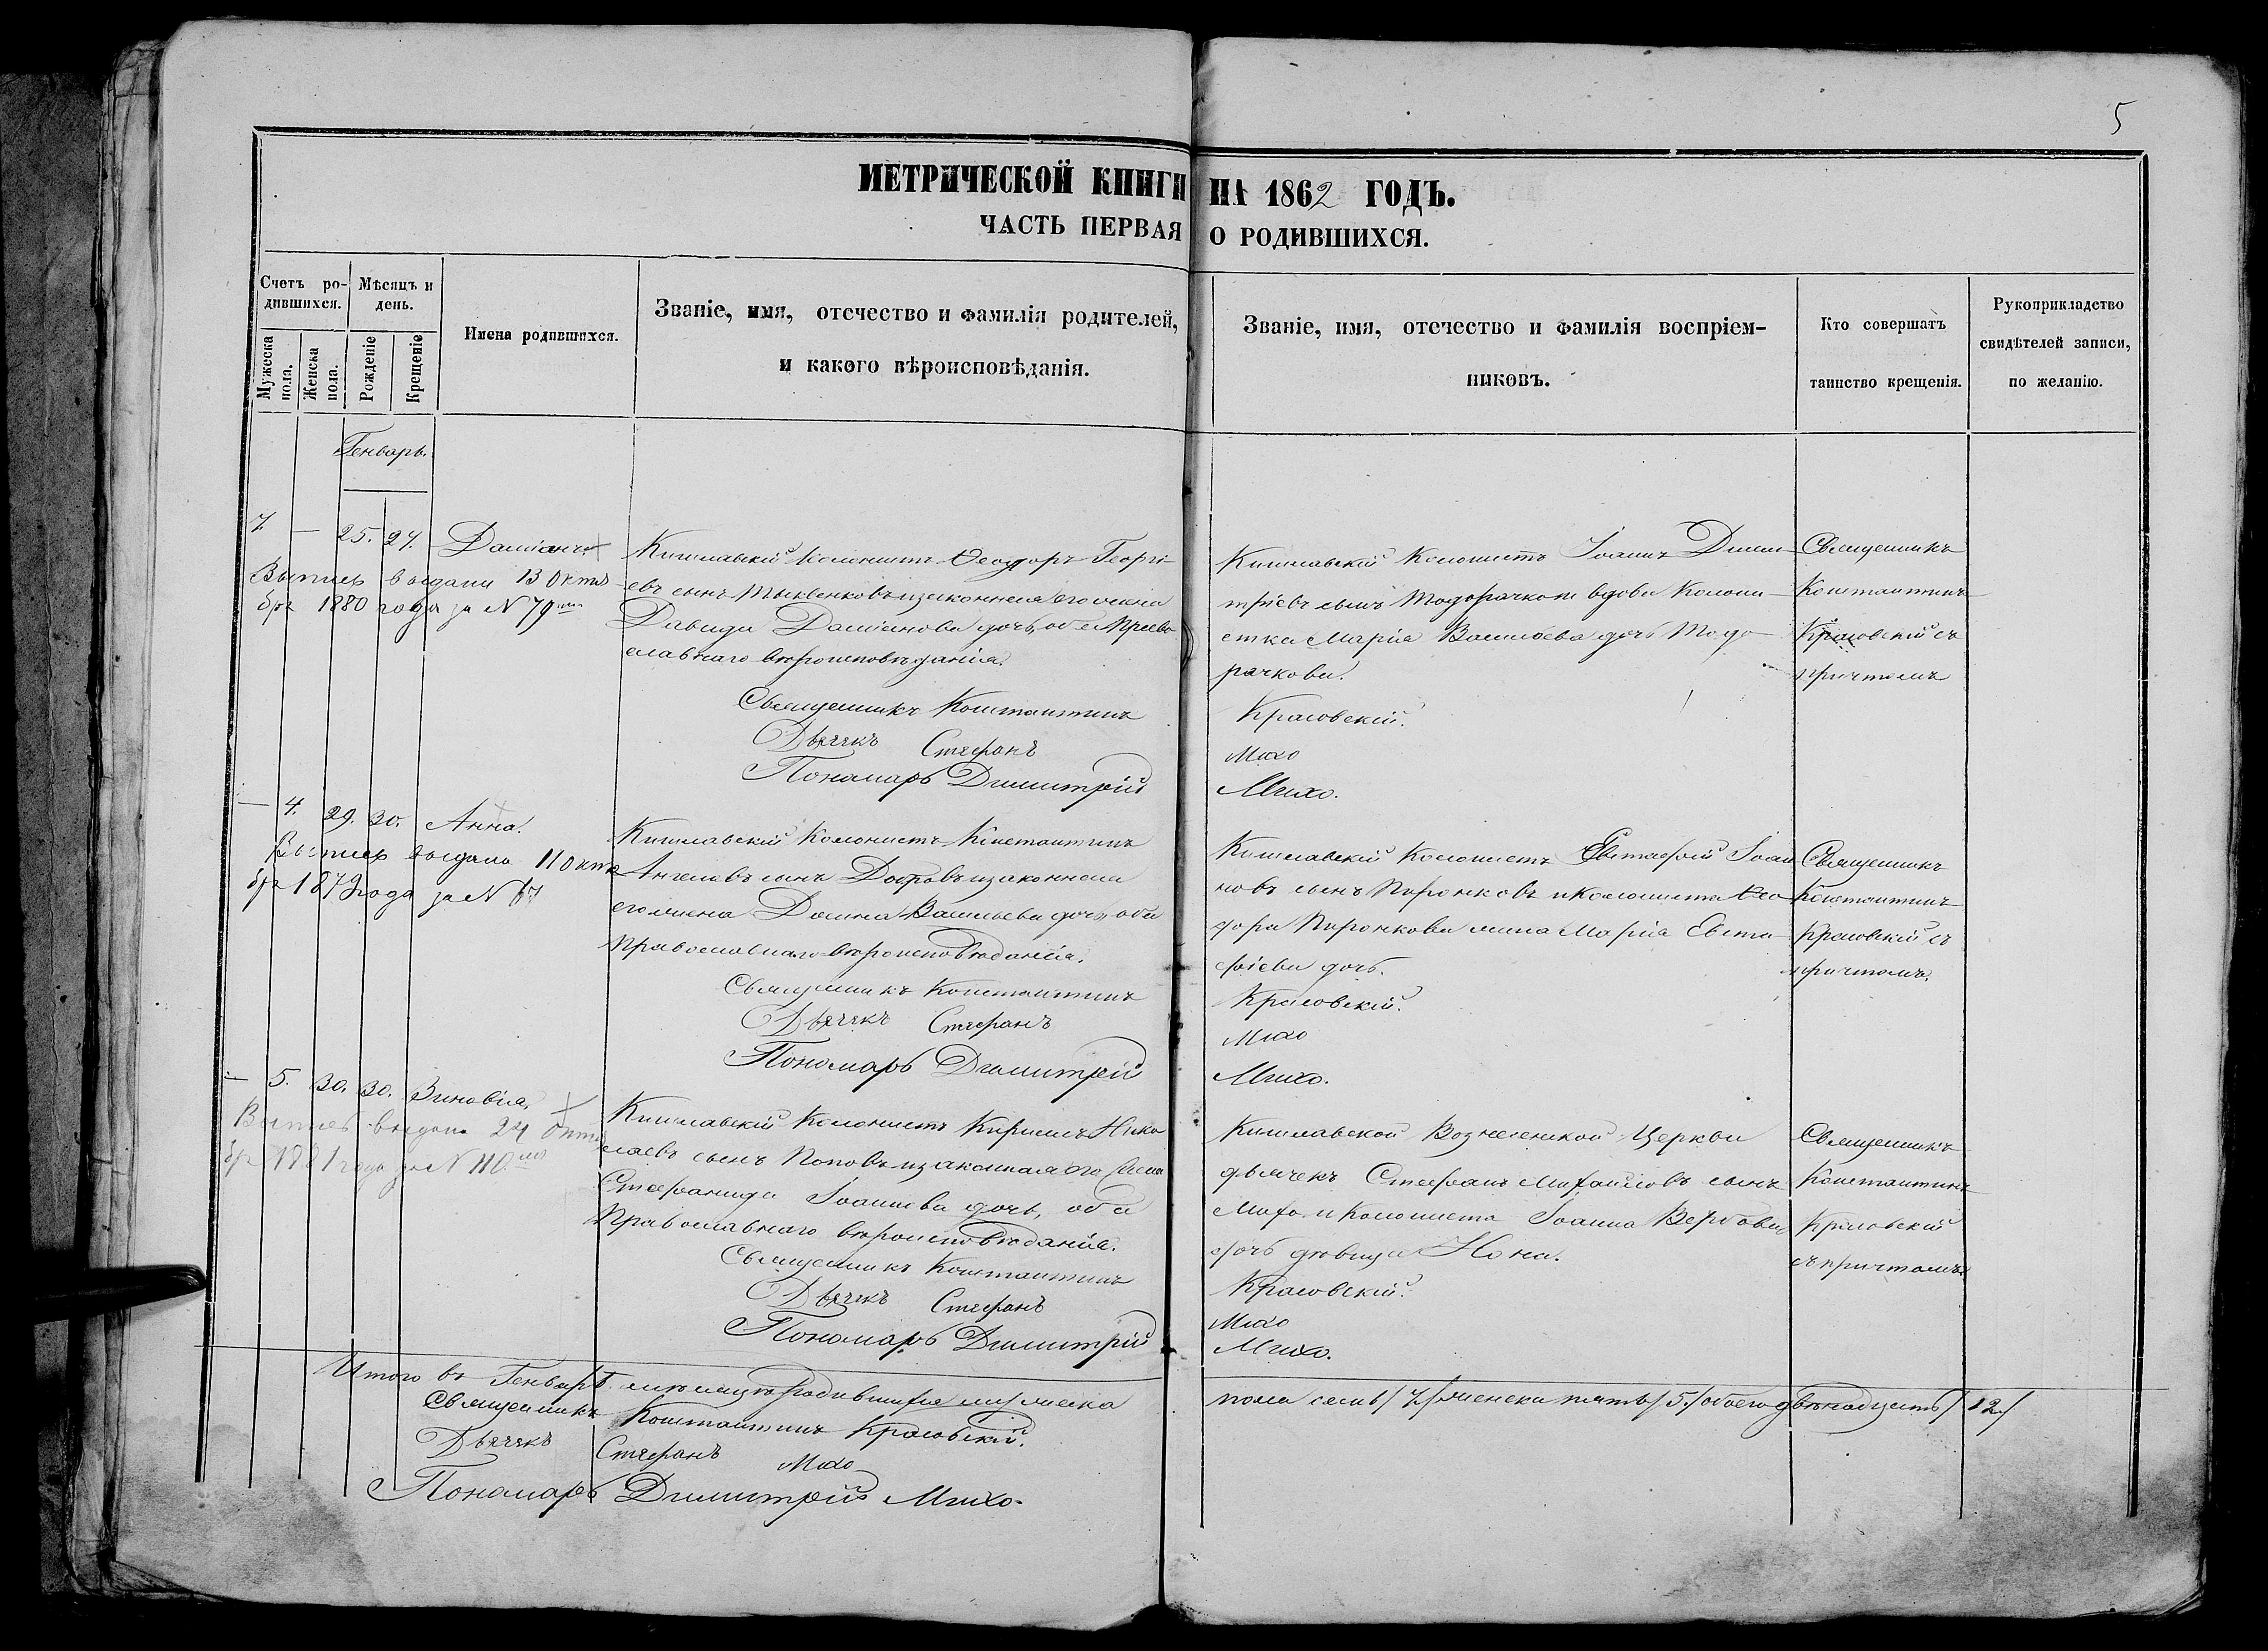 5
МЕТРИЧЕСКОЙ КНИГИ НА 1862 ГОДЪ.
ЧАСТЬ ПЕРВАЯ О РОДИВШИХСЯ.
Счетъ ро-
дившихся.
Мужеска пола.
Женска пола.
Мѣсяцъ и
день.
Рожденіе
Крещеніе
Имена родившихся.
Званіе, имя, отечество и фамилія родителей,
и какого вѣроисповѣданія.
Званіе, имя, отечество и фамилія воспріем-
никовъ.
Кто совершатъ
таинство крещенія.
Рукоприкладство
свидѣтелей записи,
по желанію.
Генварь.
7. — 25. 27. Даміанъ
Выпись выдана 13 Октя
бря 1880 года за N 79
Кишлавскій Колонистъ Ѳеодоръ Георгі-
евъ сынъ и законная его жена
Давида Даміанова дочь, оба Право
славнаго вѣроисповѣданія.
Священникъ Константинъ
Дьячекъ Стефанъ
Пономарь Димитрій
Кишлавскій Колонистъ Іоаннъ Дими-
тріевъ сынъ Тодорачков вдова Колони-
стка Марія Васильева дочь Тодо-
рачкова.
Красовскій.
Михо
Михо.
Священникъ
Константинъ
Красовскій съ
причтомъ
— 4. 29. 30. Анна.
Выпись выдана 11 Октя
бря 1879 года за N 67
Кишлавскій Колонистъ Константинъ
Ангеловъ сынъ и законная
его жена Домна Васильева дочь, оба
Православнаго вѣроисповѣданія.
Священникъ Константинъ
Дьячекъ Стефанъ
Пономарь Димитрій
Кишлавскій Колонистъ Евстафій Іоан
новъ сынъ Пиронковъ и Колониста Ѳео
дора Пиронкова жена Марія Евста
фіева дочь.
Красовскій.
Михо
Михо.
Священникъ
Константинъ
Красовскій съ
причтомъ.
— 5. 30. 30. Зиновія.
Выпись выдана 24 Октя
бря 1881 года за N 110
Кишлавскій Колонистъ Кирилъ Нико
лаевъ сынъ Поповъ и законная его жена
Стефанида Іоаннова дочь, оба
Православнаго вѣроисповѣданія.
Священникъ Константинъ
Дьячекъ Стефанъ
Пономарь Димитрій
Кишлавской Вознесенской Церкви
дьячекъ Стефанъ Михайловъ сынъ
Михо и Колониста Іоанна Вербова
дочь дѣвица Нона.
Красовскій.
Михо
Михо.
Священникъ
Константинъ
Красовскій
съ причтомъ.
Итого въ Генварѣ мѣсяцѣ родившихся мужеска пола семь /7./ женска пять /5./ обоего двѣнадцать /12./
Священникъ Константинъ Красовскій.
Дьячекъ Стефанъ Михо
Пономарь Димитрій Михо.